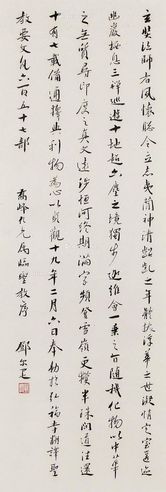 玄奘法師者夙懷聰令立志夷簡神清齠齔之年體拔浮華之世凝情定室匿迹
幽巖栖息三禪巡遊十地超六塵之境獨步迦維會一乘之旨隨機化物以中華
之無質尋印度之真文遠涉恒河終期滿字頻登雪嶺更獲半珠問道往還
十有七載備通釋典利物為心以貞觀十九年二月六日奉勅於弘福寺翻譯聖
教要文凡六百五十七部
九兄屬臨聖教序 鄧尔疋